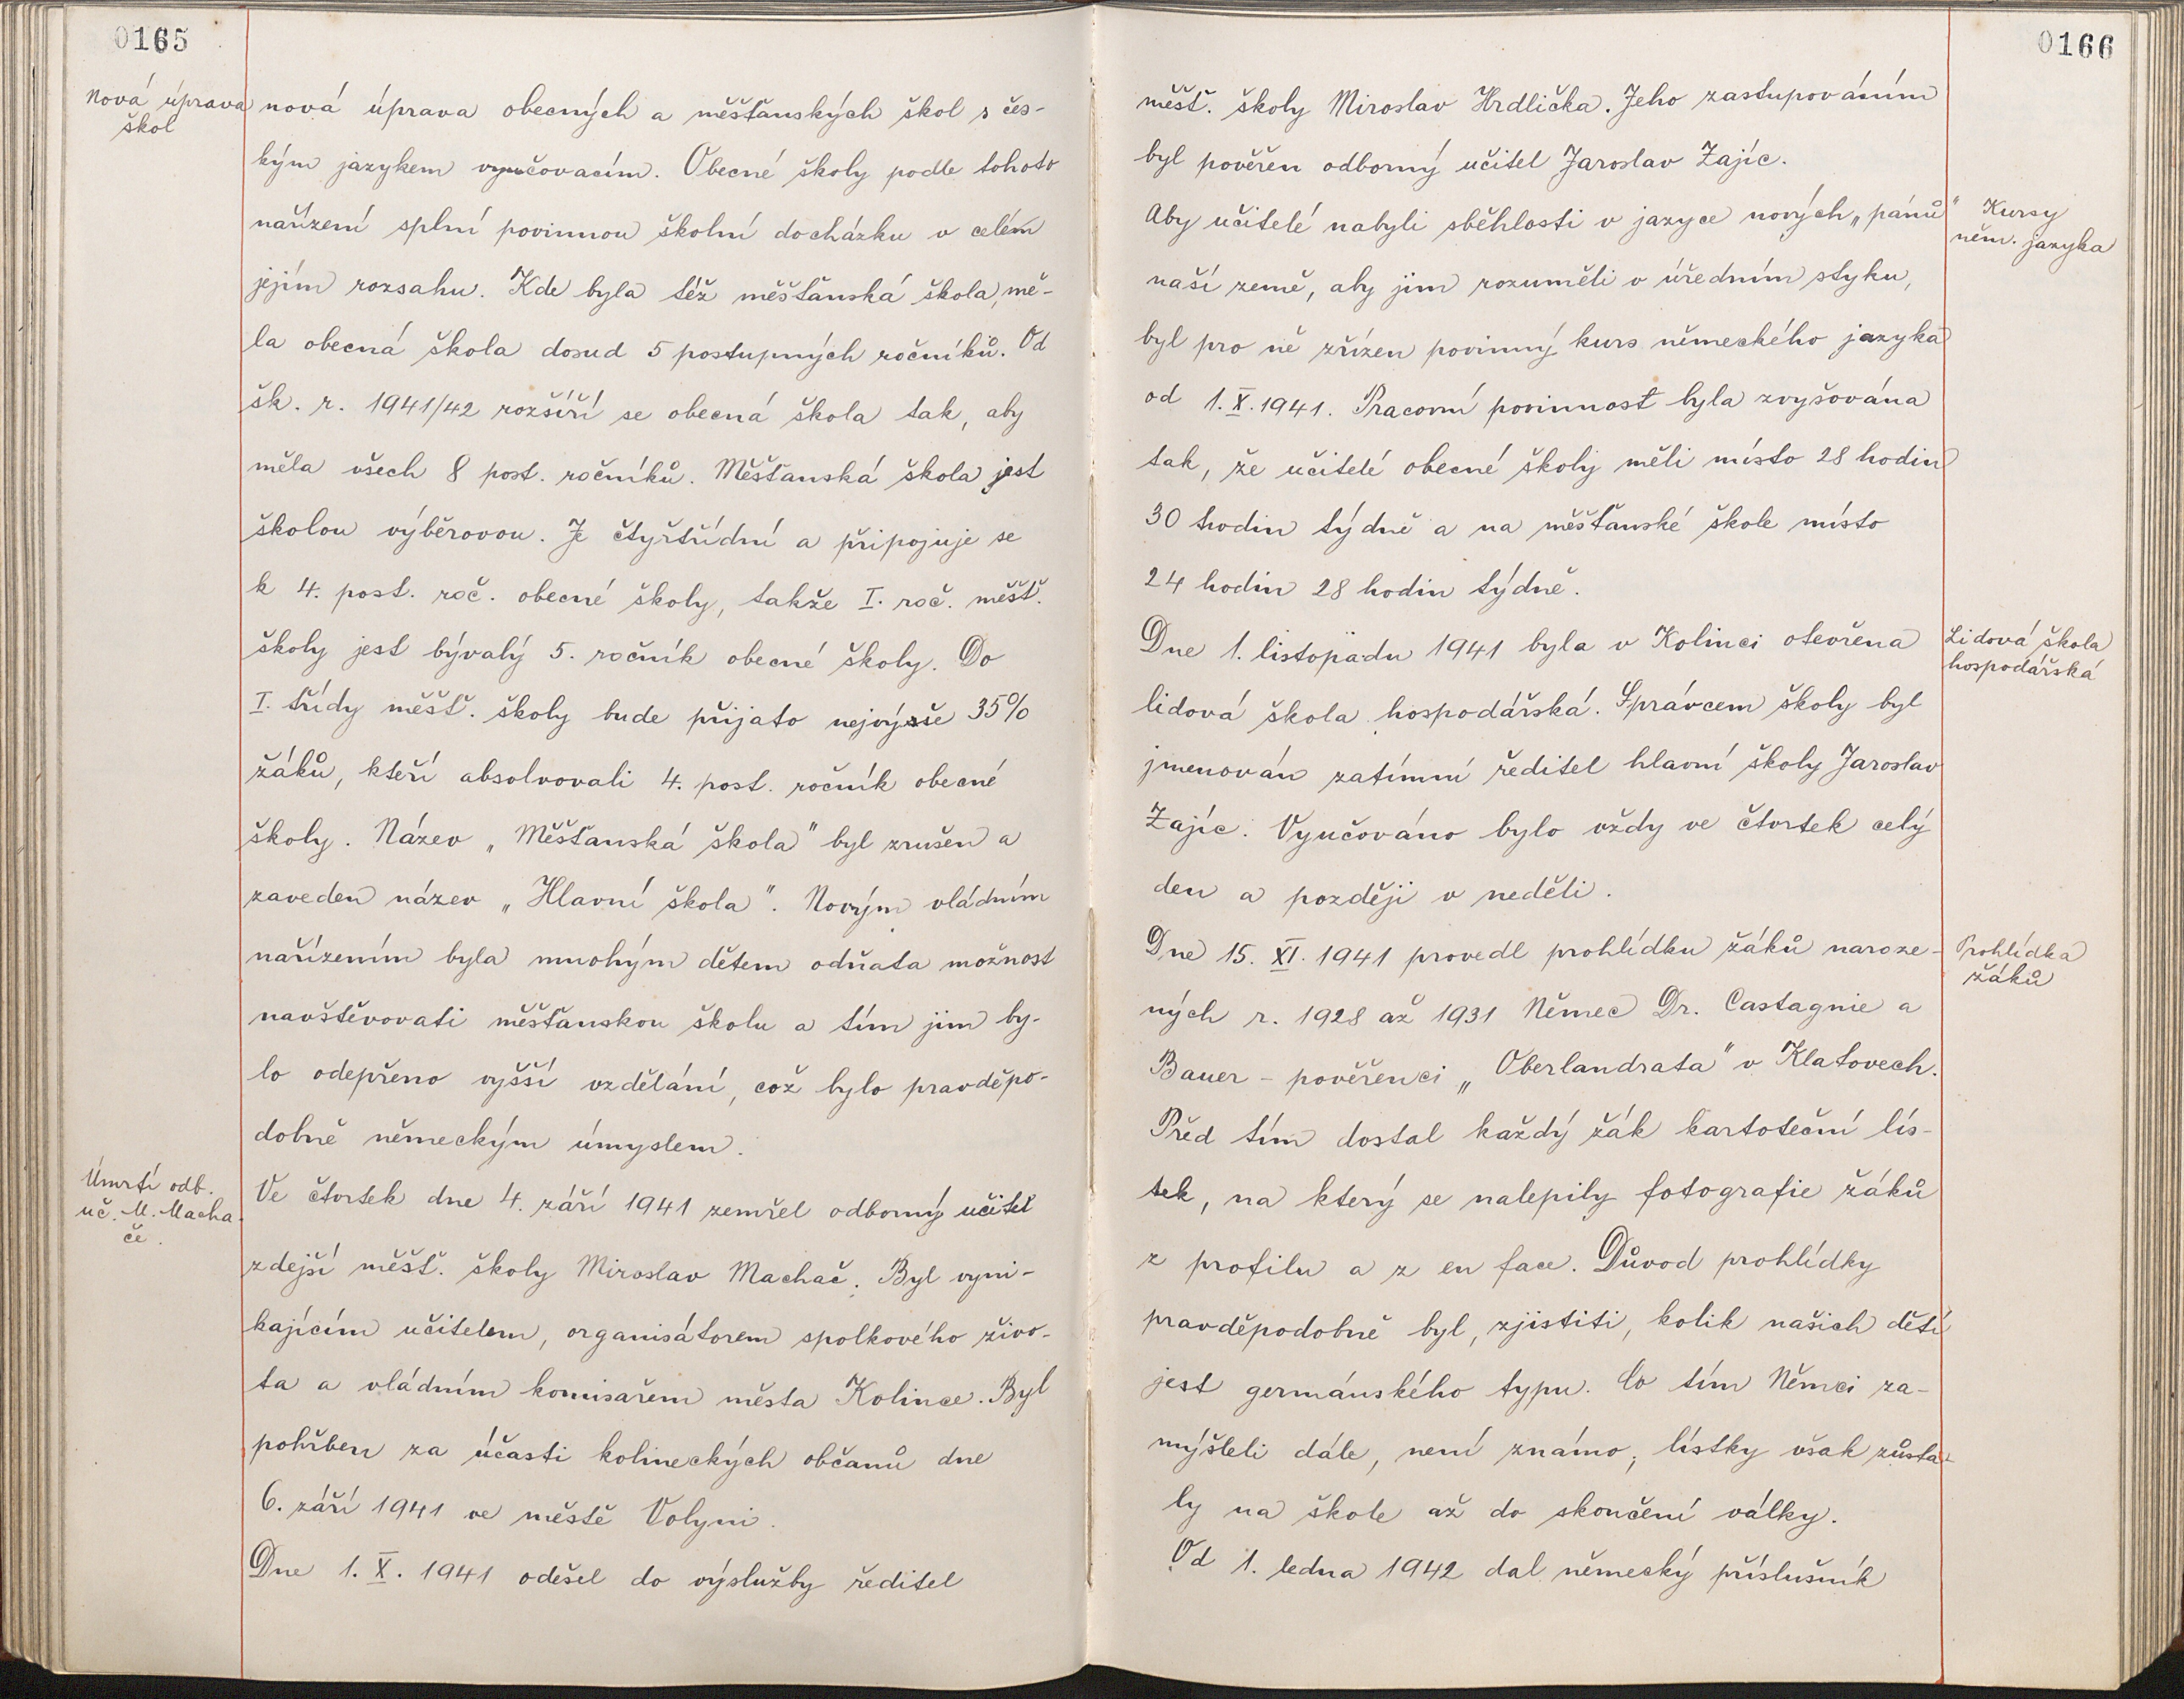 0165
Nová úprava
škol
nová úprava obecných a měšťanských škol s čes-
kým jazykem vyučovacím. Obecné školy podle tohoto
nařízení splní povinnou školní docházku v celém
jejím rozsahu. Kde byla též měšťanská škola, mě-
la obecná škola dosud 5 postupných ročníků. Od
šk. r. 1941/42 rozšíří se obecná škola tak, aby
měla všech 8 post. ročníků. Měšťanská škola jest
školou výběrovou. Je čtyřtřídní a připojuje se
k 4. post. roč. obecné školy, takže I. roč. měšť.
školy jest bývalý 5. ročník obecné školy. Do
I. třídy měšť. školy bude přijato nejvýše 35%
žáků, kteří absolvovali 4. post. ročník obecné
školy. Název „Měšťanská škola" byl zrušen a
zaveden název „Hlavní škola". Novým vládním
nařízením byla mnohým dětem odňata možnost
navštěvovati měšťanskou školu a tím jim by-
lo odepřeno vyšší vzdělání, což bylo pravděpo-
dobně německým úmyslem.
Úmrtí odb.
uč. M. Macha-
če.
Ve čtvrtek dne 4. září 1941 zemřel odborný učitel
zdejší měšť. školy Miroslav Machač. Byl vyni-
kajícím učitelem, organisátorem spolkového živo-
ta a vládním komisařem města Kolince. Byl
pohřben za účasti kolineckých občanů dne
6. září 1941 ve městě Volyni.
Dne 1. X. 1941 odešel do výslužby ředitel
0166
měšť. školy Miroslav Hrdlička. Jeho zastupováním
byl pověřen odborný učitel Jaroslav Zajíc.
Aby učitelé nabyli sběhlosti v jazyce nových „pánů"
Kursy
něm. jazyka
naší země, aby jim rozuměli v úředním styku,
byl pro ně zřízen povinný kurs německého jazyka
od 1. X. 1941. Pracovní povinnost byla zvyšována
tak, že učitelé obecné školy měli místo 28 hodin
30 hodin týdně a na měšťanské škole místo
24 hodin 28 hodin týdně.
Dne 1. listopadu 1941 byla v Kolinci otevřena
Lidová škola
hospodářská
lidová škola hospodářská. Správcem školy byl
jmenován zatímní ředitel hlavní školy Jaroslav
Zajíc. Vyučováno bylo vždy ve čtvrtek celý
den a později v neděli.
Dne 15. XI. 1941 provedl prohlídku žáků naroze-
Prohlídka
žáků
ných r. 1928 až 1931 Němec Dr. Castagnie a
Bauer - pověřenci „Oberlandrata" v Klatovech.
Před tím dostal každý žák kartoteční lís-
tek, na který se nalepily fotografie žáků
z profilu a z en face. Důvod prohlídky
pravděpodobně byl, zjistiti, kolik našich dětí
jest germánského typu. Co tím Němci za-
mýšleli dále, není známo; lístky však zůsta-
ly na škole až do skončení války.
Od 1. ledna 1942 dal německý příslušník